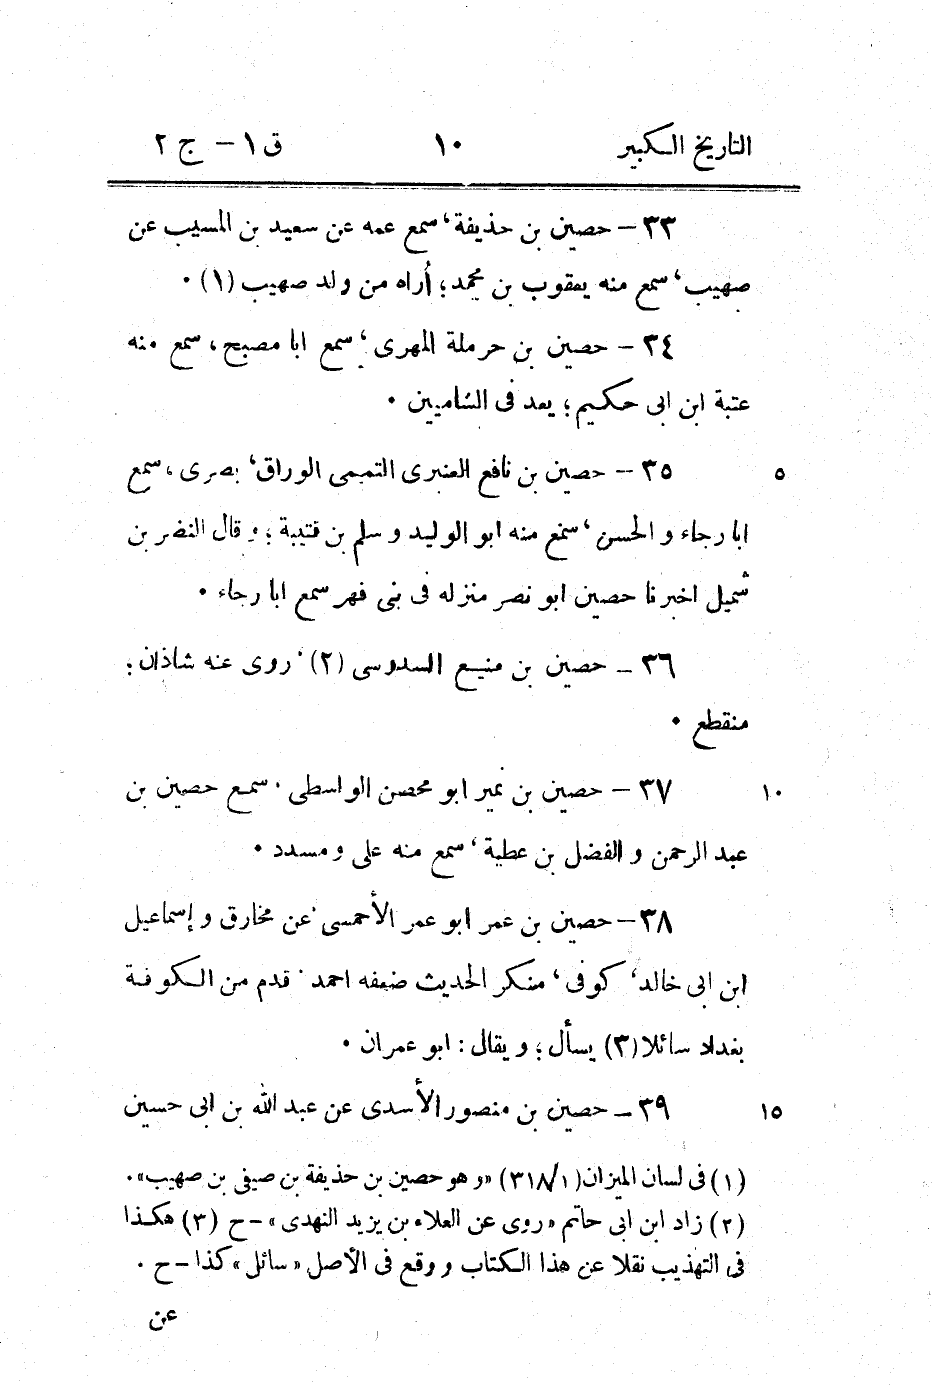 التاريخ الكبير ١٠ ق ١ – ج ٢
٣٣ – حصين بن حذيفة، سمع عمه عن سعيد بن المسيب عن
صهيب، سمع منه يعقوب بن محمد؛ أراه من ولد صهيب (١) ٠
٣٤ – حصين بن حرملة المهرى، سمع ابا مصبح، سمع منه
عتبة ابن ابى حكيم؛ يعد فى الشاميين ٠
٥ ٣٥ – حصين بن نافع العنبرى التميمى الوراق، بصرى، سمع
ابا رجاء و الحسن، سمع منه ابو الوليد و سلم بن قتيبة؛ و قال النضر بن
شميل اخبرنا حصين ابو نصر منزله فى بنى فهر سمع ابا رجاء ٠
٣٦ – حصين بن منيع السدوسى (٢) روى عنه شاذان؛
منقطع ٠
١٠ ٣٧ – حصين بن نمير ابو محصن الواسطى سمع حصين بن
عبد الرحمن و الفضل بن عطية، سمع منه على و مسدد ٠
٣٨ – حصين بن عمر ابو عمر الأحمسى عن مخارق و إسماعيل
ابن ابى خالد، كوفى، منكر الحديث ضعفه احمد قدم من الكوفة
بغداد سائلا (٣) يسأل؛ و يقال : ابو عمران ٠
١٥ ٣٩ – حصين بن منصور الأسدى عن عبد الله بن ابى حسين
(١) فى لسان الميزان (٣١٨/١) «و هو حصين بن حذيفة بن صيفى بن صهيب».
(٢) زاد ابن ابى حاتم «روى عن العلاء بن يزيد النهدى» – ح (٣) هكذا
فى التهذيب نقلا عن هذا الكتاب و وقع فى الأصل «سائل» كذا – ح .
عن